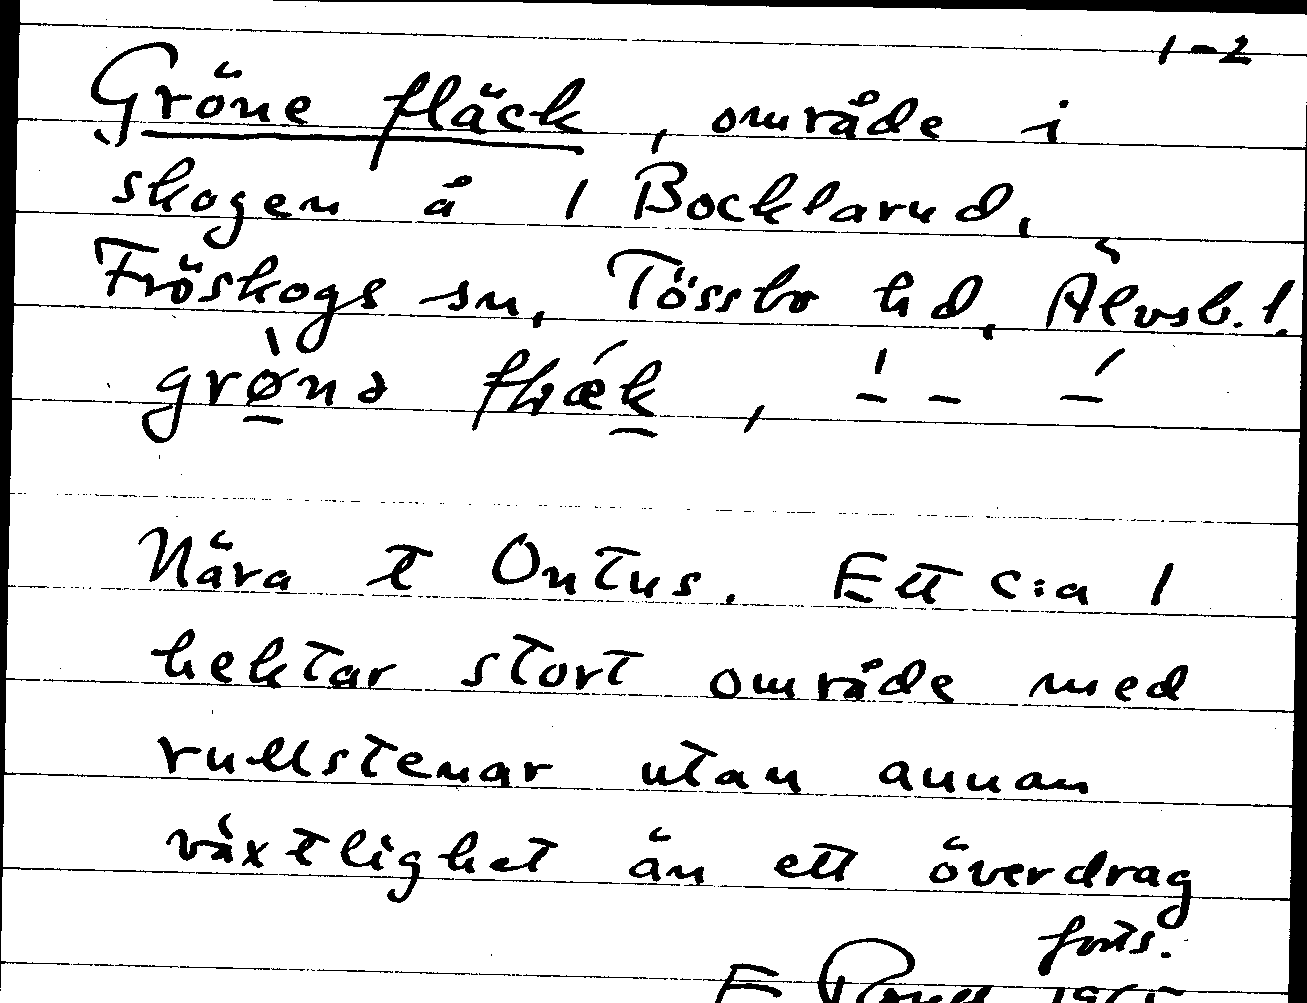 1-2
Gröne fläck, område i
skogen å 1 Bocklarud,
Fröskogs sn, Tössbo hd, Älvsb. l.
Nära t Ontus. Ett c:a 1
hektar stort område med
rullstenar utan annan
växtlighet än ett överdrag
forts.